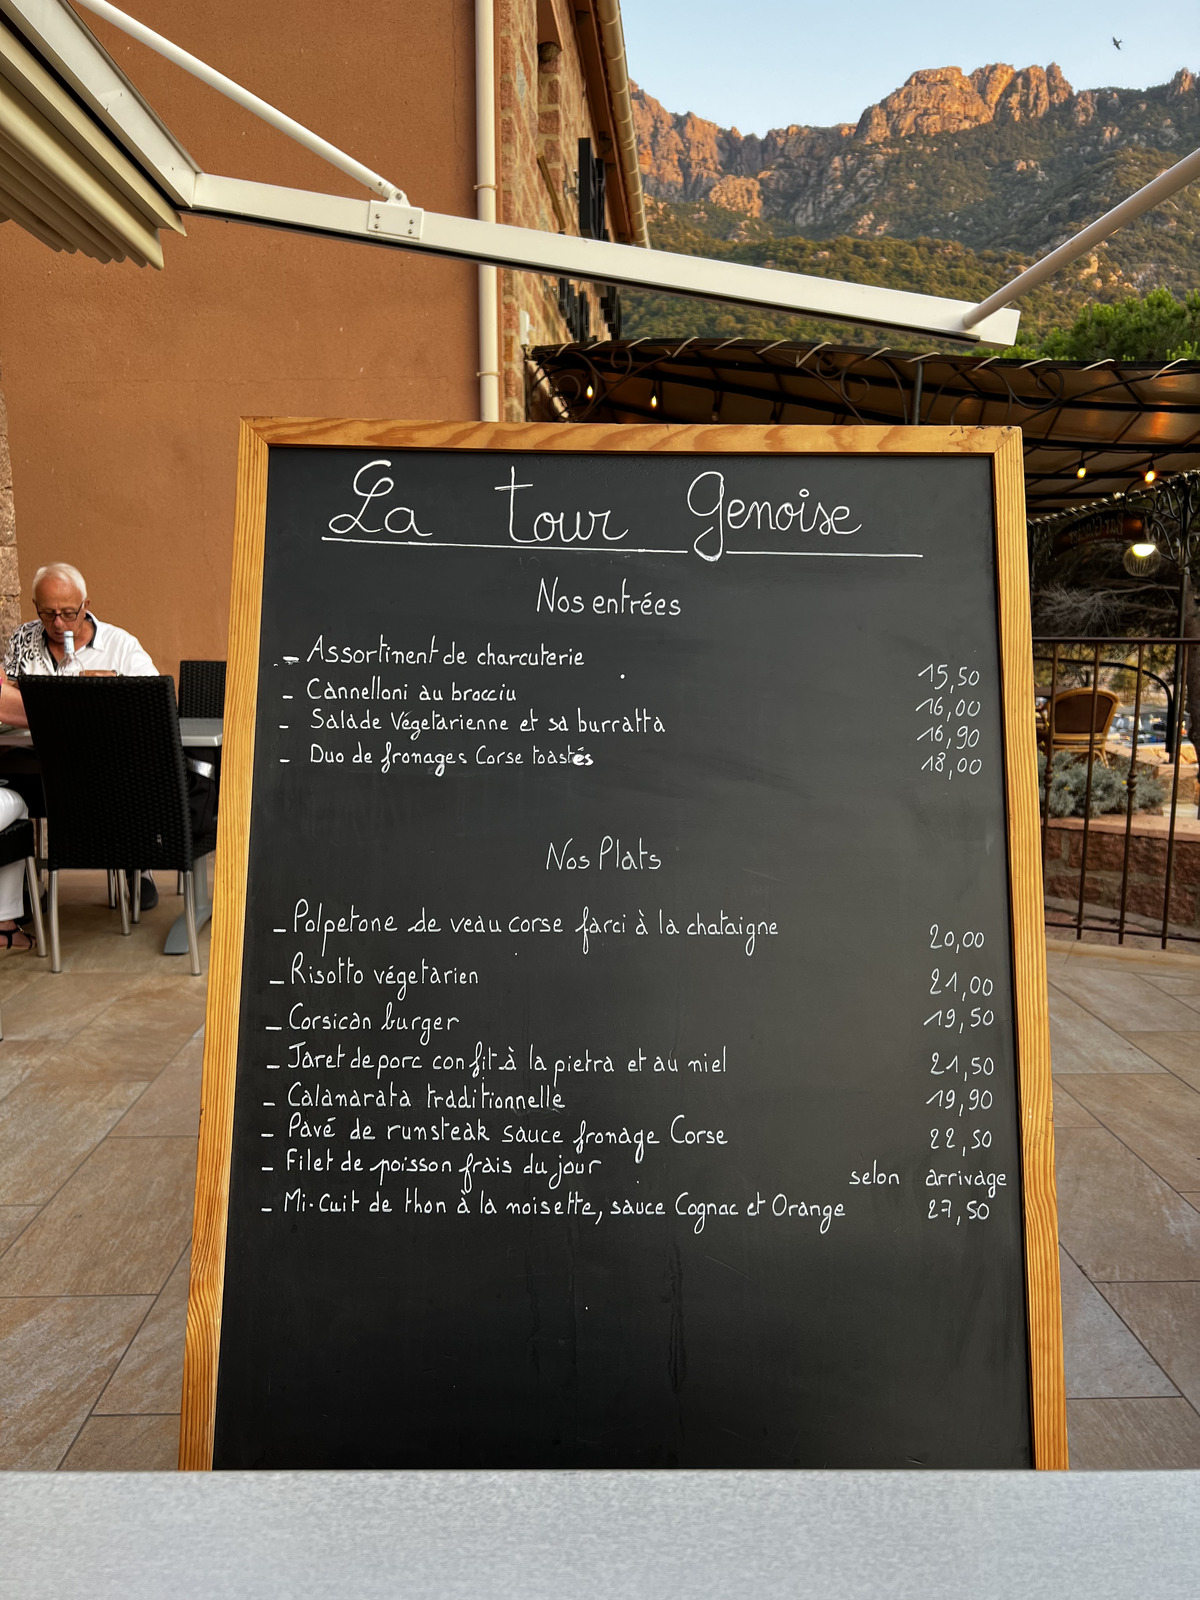 La tour Genoise
Nos entrées
- Assortiment de charcuterie 15,50
- Cannelloni au brocciu 16,00
- Salade Végetarienne et sa burratta 16,90
- Duo de fromages Corse toastés 18,00
Nos Plats
- Polpetone de veau corse farci à la chataigne 20,00
- Risotto végetarien 21,00
- Corsican burger 19,50
- Jaret de porc confit à la pietra et au miel 21,50
- Calamarata traditionnelle 19,90
- Pavé de rumsteak sauce fromage Corse 22,50
- Filet de poisson frais du jour selon arrivage
- Mi-Cuit de thon à la noisette, sauce Cognac et Orange 27,50